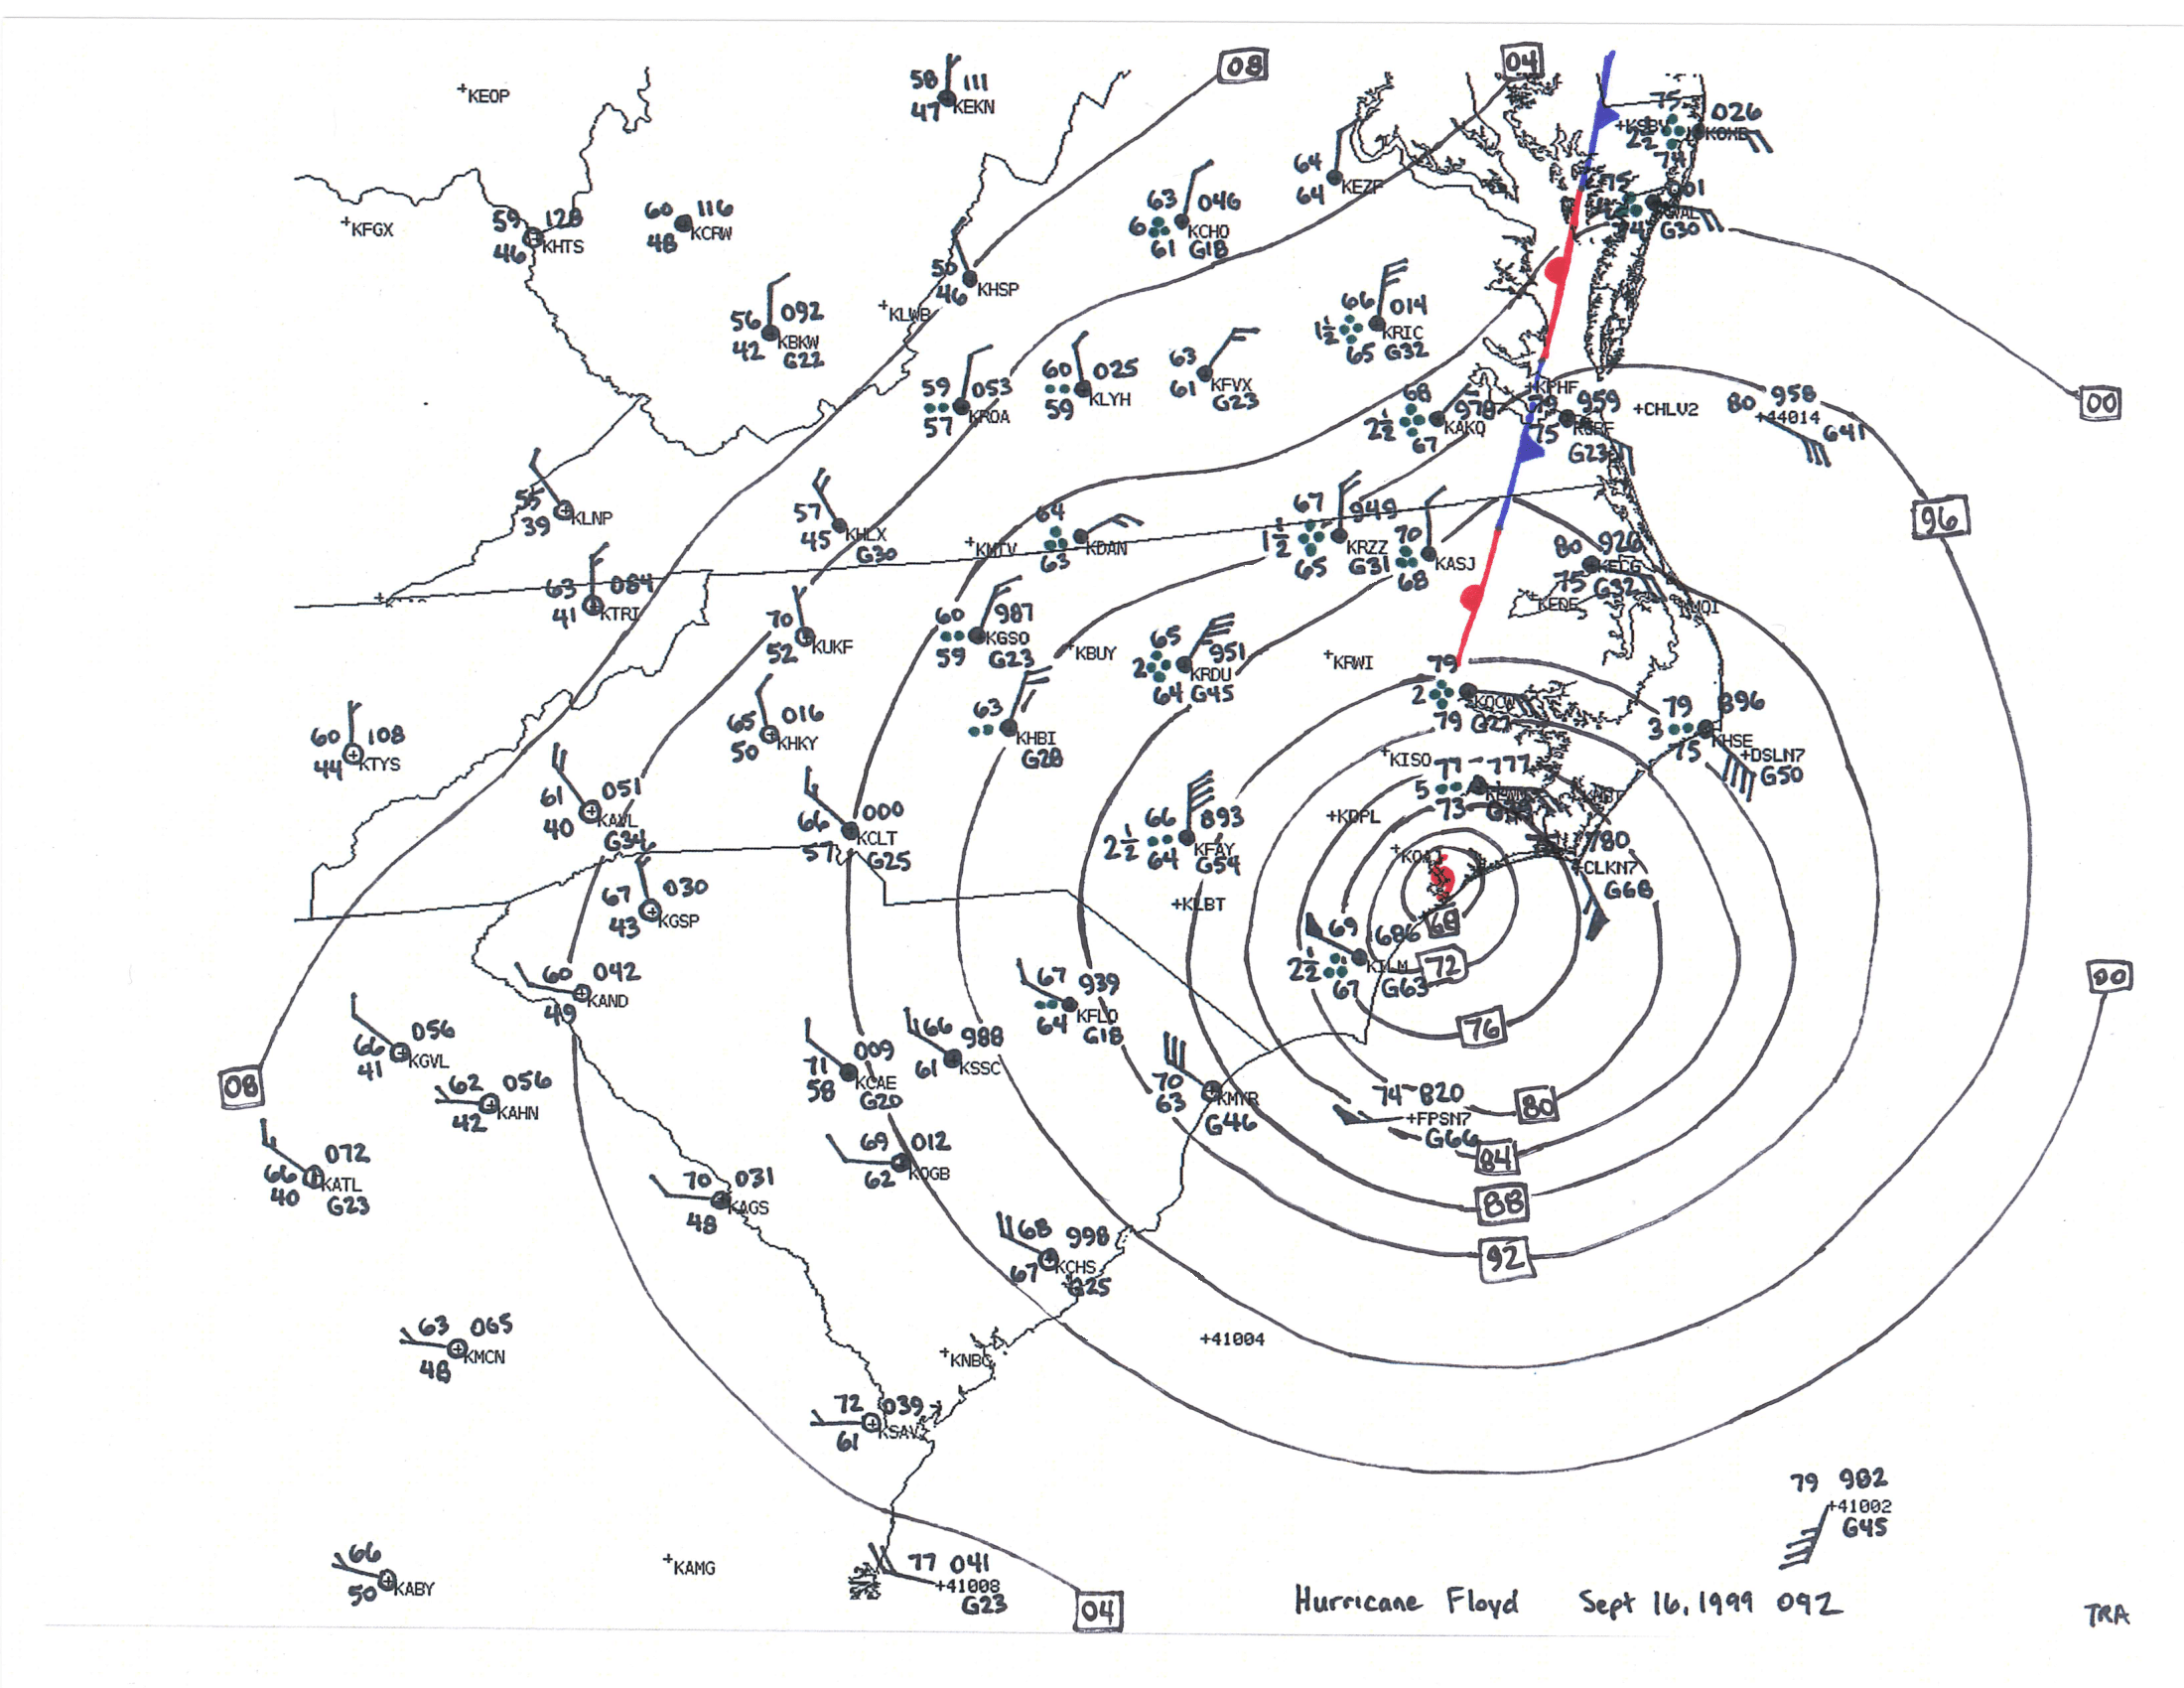 08
04
+KEOP
58 111
47 KEKN
75 026
+KSBY
22
74
59 128
46 KHTS
+KFGX
60 116
48 KCRW
63 046
6 KCHO
61 G18
64
64 KEZF
75 001
KWAL
74 G30
50
46 KHSP
+KLWB
56 092
42 KBKW
G22
66 014
1½ KRIC
65 G32
59 053
KROA
57
60 025
KLYH
59
63
61 KFVX
G23
68 978
2½ KAKQ
67
+KPHF
79 959
75
G23
+CHLV2
80 958
+44014
G41
00
55
39 KLNP
57
45 KHLX
G30
+KMTV
64
KDAN
63
67 949
1½ KRZZ
65 G31
70
KASJ
68
80 926
KECG
75 G32
+KEDE
KMQI
96
63 084
41 KTRI
70
52 KUKF
60 987
KGSO
59 G23
+KBUY
65 951
2 KRDU
64 G45
+KRWI
79
2 KOCW
79 G27
79 896
3 KHSE
75
+DSLN7
G50
60 108
44 KTYS
65 016
50 KHKY
63
KHBI
G28
+KISO
77 777
5
73
61 051
40 KAVL
G34
66 000
57 KCLT
G25
66 893
2½ KFAY
64 G54
+KDPL
780
+CLKN7
G68
67 030
43 KGSP
+KLBT
69 686
2½ KILM
67 G63
68
72
60 042
49 KAND
67 939
KFLO
64 G18
00
76
66 056
41 KGVL
62 056
42 KAHN
71 009
58 KCAE
G20
66 988
61 KSSC
70
63 KMYR
G46
08
74 820
+FPSN7
G66
80
84
88
92
66 072
40 KATL
G23
70 031
48 KAGS
69 012
62 KOGB
68 998
67 KCHS
G25
63 065
48 KMCN
+KNBC
+41004
72 039
61 KSAV
79 982
+41002
G45
66
50 KABY
+KAMG
77 041
+41008
G23
04
Hurricane Floyd Sept 16, 1999 09Z
TRA